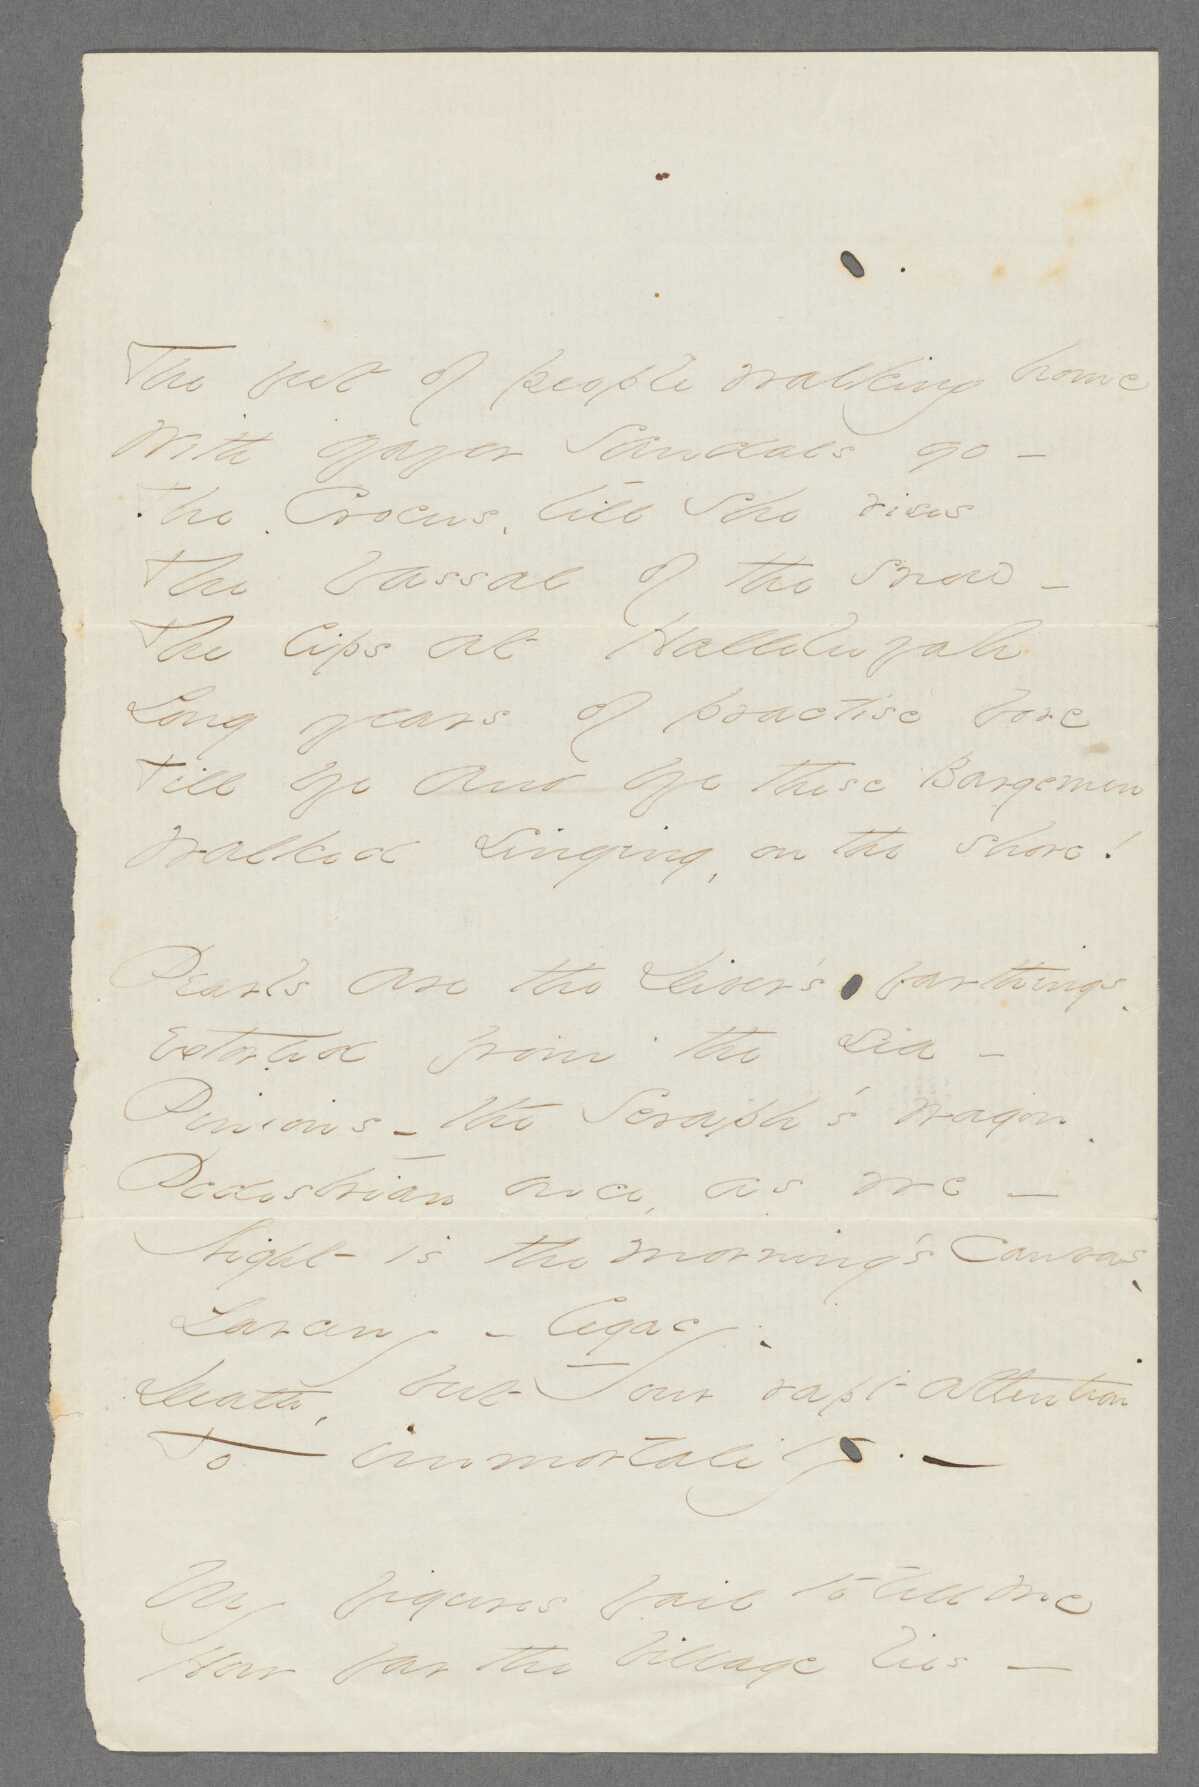 The feet of people walking home
With gayer Sandals go -
The Crocus, till she rises
The Vassal of the Snow -
The lips at Hallelujah
Long years of practise bore
Till bye and bye these Bargemen
Walked Singing, on the Shore!
Pearls are the Diver's farthings
Extorted from the Sea -
Pinions - the Seraph's wagon
Pedestrian once, as we -
Night is the morning's Canvas
Larceny - legacy -
Death, but our rapt attention
To immortality. -
My figures fail to tell me
How far the Village lies -